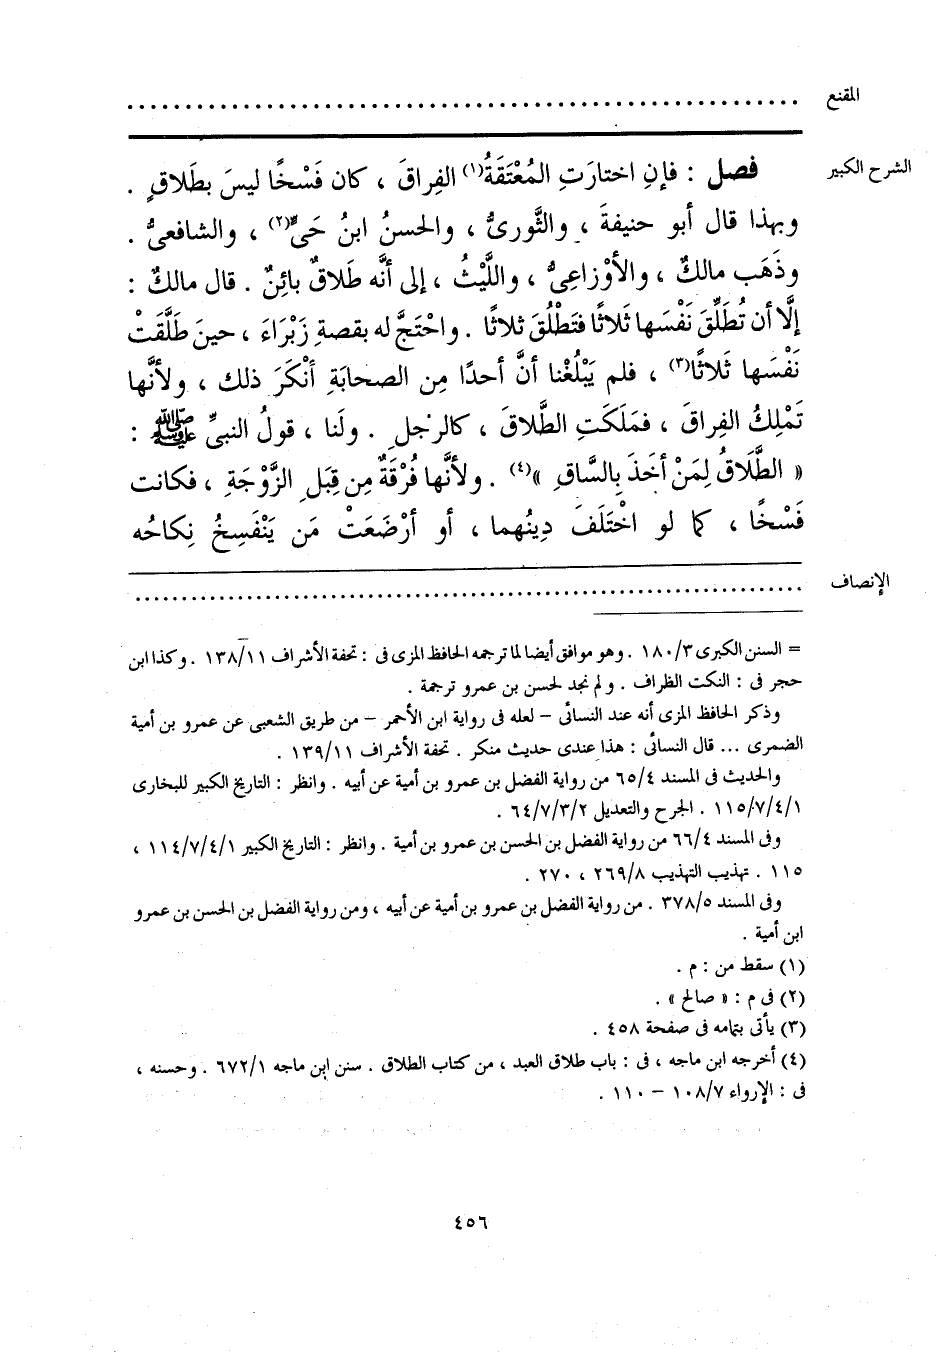 المقنع
الشرح الكبير
فصل : فإنِ اختارَتِ المُعْتَقَةُ(١) الفِراقَ ، كان فَسْخًا ليسَ بطَلاقٍ .
وبهذا قال أبو حنيفةَ ، والثَّورىُّ ، والحسنُ ابنُ حَىٍّ(٢) ، والشافعىُّ .
وذَهَب مالكٌ ، والأوْزاعِىُّ ، واللَّيْثُ ، إلى أنَّه طَلاقٌ بائِنٌ . قال مالكٌ :
إلَّا أن تُطَلِّقَ نَفْسَها ثلاثًا فتَطْلُقَ ثلاثًا . واحْتَجَّ له بقصةِ زَبْرَاءَ ، حينَ طَلَّقَتْ
نَفْسَها ثَلاثًا(٣) ، فلم يَبْلُغْنا أنَّ أحدًا مِن الصحابَةِ أنْكَرَ ذلك ، ولأنَّها
تَمْلِكُ الفِراقَ ، فمَلَكَتِ الطَّلاقَ ، كالرجلِ . ولَنا ، قولُ النبىِّ ﷺ :
« الطَّلَاقُ لِمَنْ أَخَذَ بِالسَّاقِ »(٤) . ولأنَّها فُرْقَةٌ مِن قِبَلِ الزَّوْجَةِ ، فكانت
فَسْخًا ، كما لو اخْتَلَفَ دِينُهما ، أو أرْضَعَتْ مَن يَنْفَسِخُ نِكاحُه
الإنصاف
= السنن الكبرى ٣/ ١٨٠ . وهو موافق أيضا لما ترجمه الحافظ المزى فى : تحفة الأشراف ١١/ ١٣٨ . وكذا ابن
حجر فى : النكت الظراف . ولم نجد لحسن بن عمرو ترجمة .
وذكر الحافظ المزى أنه عند النسائى – لعله فى رواية ابن الأحمر – من طريق الشعبى عن عمرو بن أمية
الضمرى ... قال النسائى : هذا عندى حديث منكر . تحفة الأشراف ١١/ ١٣٩ .
والحديث فى المسند ٤/ ٦٥ من رواية الفضل بن عمرو بن أمية عن أبيه . وانظر : التاريخ الكبير للبخارى
١/ ٤/ ٧/ ١١٥ . الجرح والتعديل ٢/ ٣/ ٧/ ٦٤ .
وفى المسند ٤/ ٦٦ من رواية الفضل بن الحسن بن عمرو بن أمية . وانظر : التاريخ الكبير ١/ ٤/ ٧/ ١١٤ ،
١١٥ . تهذيب التهذيب ٨/ ٢٦٩ ، ٢٧٠ .
وفى المسند ٥/ ٣٧٨ . من رواية الفضل بن عمرو بن أمية عن أبيه ، ومن رواية الفضل بن الحسن بن عمرو
ابن أمية .
(١) سقط من : م .
(٢) فى م : « صالح » .
(٣) يأتى بتمامه فى صفحة ٤٥٨ .
(٤) أخرجه ابن ماجه ، فى : باب طلاق العبد ، من كتاب الطلاق . سنن ابن ماجه ١/ ٦٧٢ . وحسنه ،
فى : الإرواء ٧/ ١٠٨ – ١١٠ .
٤٥٦